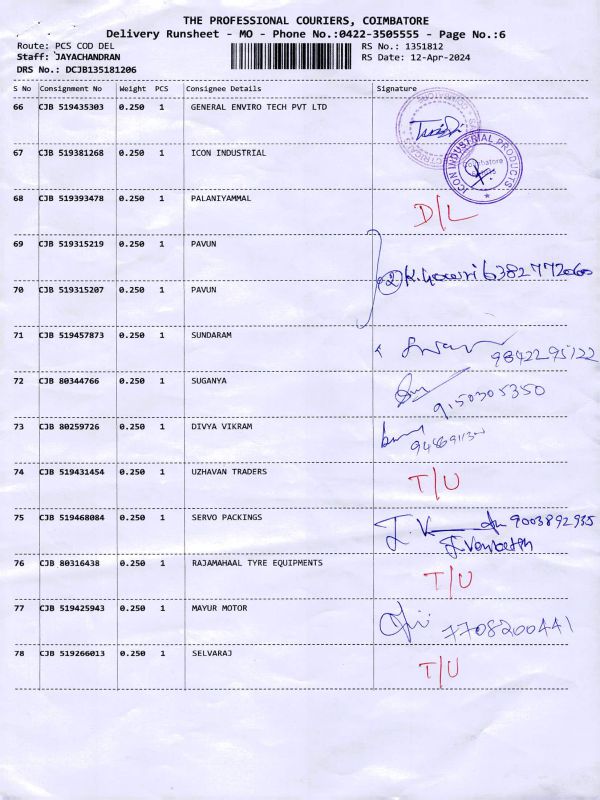 THE PROFESSIONAL COURIERS, COIMBATORE
Delivery Runsheet - MO - Phone No.:0422-3505555 - Page No.:6
Route: PCS COD DEL RS No.: 1351812
Staff: JAYACHANDRAN RS Date: 12-Apr-2024
DRS No.: DCJB135181206
S No Consignment No Weight PCS Consignee Details Signature
66 CJB 519435303 0.250 1 GENERAL ENVIRO TECH PVT LTD
67 CJB 519381268 0.250 1 ICON INDUSTRIAL
ICON INDUSTRIAL PRODUCTS
Coimbatore
68 CJB 519393478 0.250 1 PALANIYAMMAL D/L
69 CJB 519315219 0.250 1 PAVUN
② K. 6382772060
70 CJB 519315207 0.250 1 PAVUN
71 CJB 519457873 0.250 1 SUNDARAM 9842295122
72 CJB 80344766 0.250 1 SUGANYA 9150305350
73 CJB 80259726 0.250 1 DIVYA VIKRAM
74 CJB 519431454 0.250 1 UZHAVAN TRADERS T/U
75 CJB 519468084 0.250 1 SERVO PACKINGS 9003892935
76 CJB 80316438 0.250 1 RAJAMAHAAL TYRE EQUIPMENTS T/U
77 CJB 519425943 0.250 1 MAYUR MOTOR 7708200441
78 CJB 519266013 0.250 1 SELVARAJ T/U